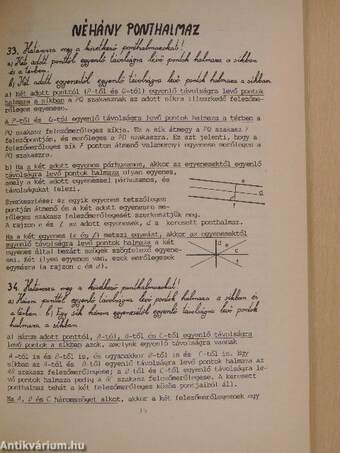 NÉHÁNY PONTHALMAZ
33. Határozza meg a következő ponthalmazokat!
a) Két adott ponttól egyenlő távolságra levő pontok halmaza a síkban
és a térben.
b) Két adott egyenestől egyenlő távolságra levő pontok halmaza a síkban
a) Két adott ponttól (P-től és Q-tól) egyenlő távolságra levő pontok
halmaza a síkban a PQ szakasznak az adott síkra illeszkedő felezőme-
rőleges egyenese.
A P-től és Q-tól egyenlő távolságra levő pontok halmaza a térben a
PQ szakasz felezőmerőleges síkja. Ez a sík átmegy a PQ szakasz F
felezőpontján, és merőleges a PQ szakaszra. Ez azt jelenti, hogy a
felezőmerőleges sík F ponton átmenő valamennyi egyenese merőleges a
PQ szakaszra.
b) Ha a két adott egyenes párhuzamos, akkor az egyenesektől egyenlő
távolságra levő pontok halmaza olyan egyenes,
amely a két adott egyenessel párhuzamos, és
távolságukat felezi.
Szerkesztése: az egyik egyenes tetszőleges
pontján átmenő és a két adott egyenesre me-
rőleges szakasz felezőmerőlegesét szerkesztjük meg.
A rajzon e és f az adott egyenesek, d a keresett ponthalmaz.
Ha a két egyenes (e és f) metszi egymást, akkor az egyenesektől
egyenlő távolságra levő pontok halmaza a két
egyenes által bezárt szögek szögfelező egyene-
sei. Két ilyen egyenes van, ezek merőlegesek
egymásra (a rajzon c és d).
34. Határozza meg a következő ponthalmazokat!
a) Három ponttól egyenlő távolságra levő pontok halmaza a síkban és
a térben. b) Egy sík három egyenesétől egyenlő távolságra levő pontok
halmaza a síkban.
a) Három adott ponttól, A-tól, B-től és C-től egyenlő távolságra
levő pontok a síkban azok, amelyek egyenlő távolságra vannak
A-tól is és B-től is, és ugyanakkor B-től és C-től is. Egy
síkban az A-tól és B-től egyenlő távolságra levő pontok halmaza az
AB szakasz felezőmerőlegese; a B-től és C-től egyenlő távolságra le-
vő pontok halmaza pedig a BC szakasz felezőmerőlegese. A keresett
ponthalmaz tehát a két felezőmerőleges közös pontjaiból áll.
Ha A, B és C háromszöget alkot, akkor a két felezőmerőlegesnek egy
Antikvárium.hu